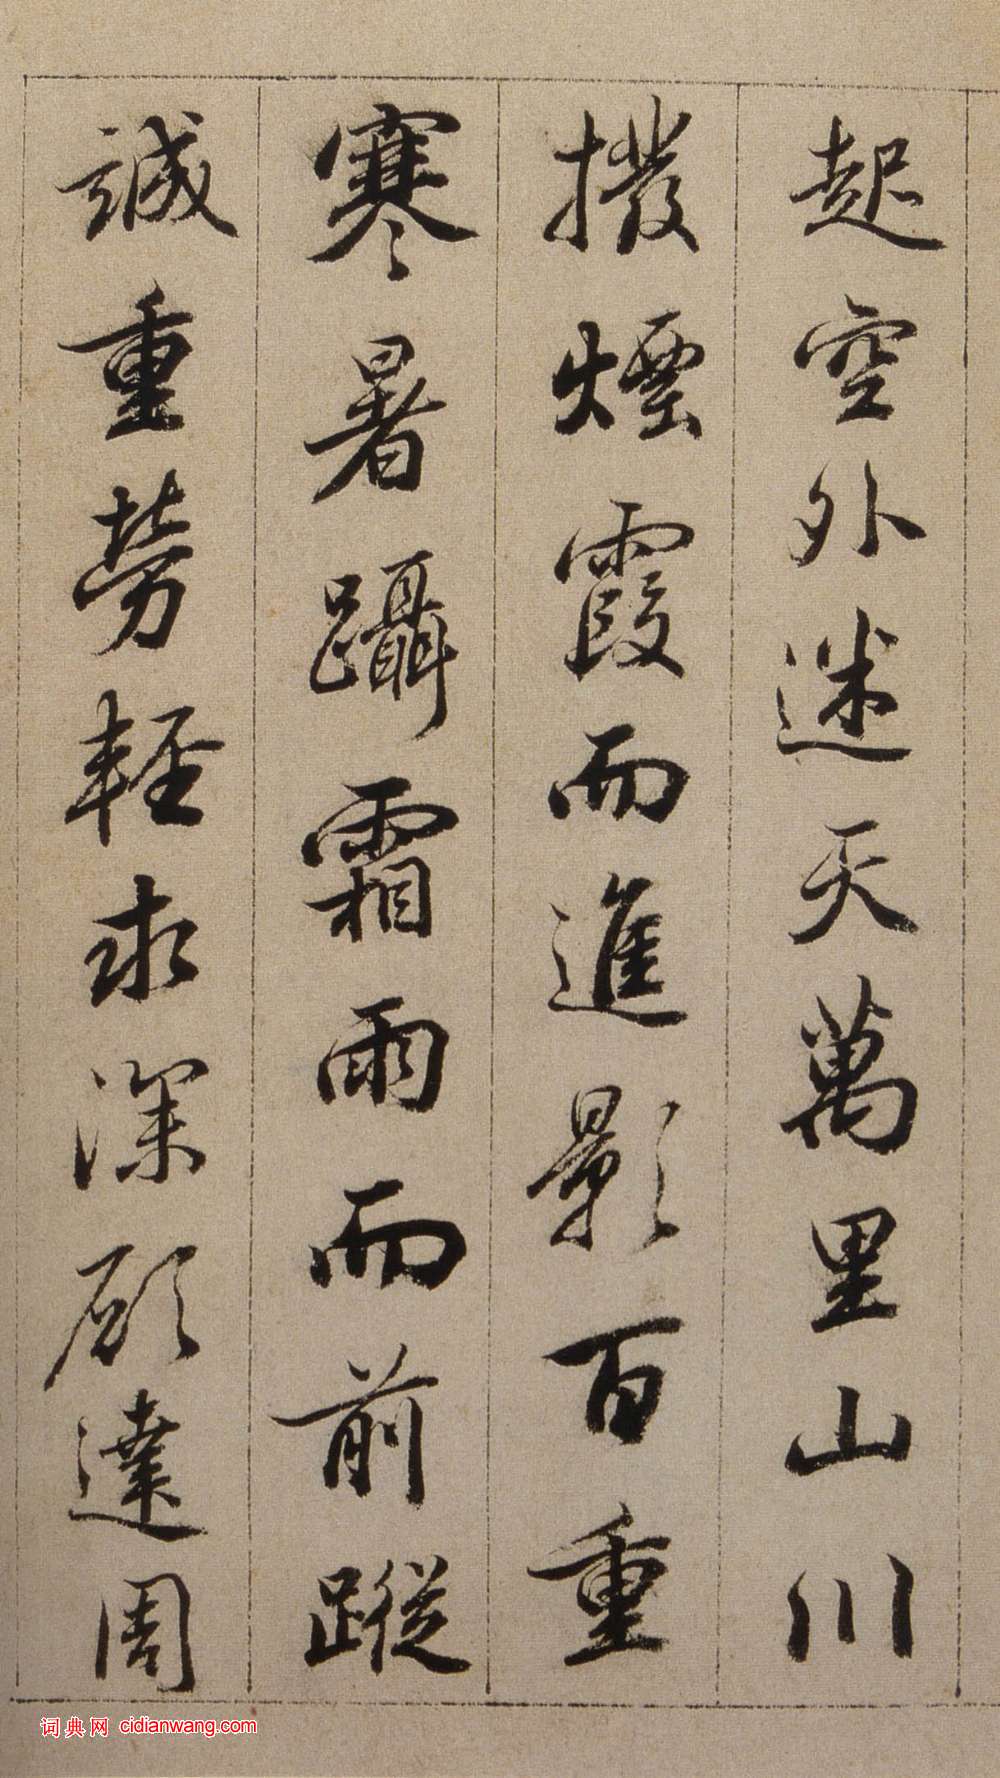 起空外迷天萬里山川
撥煙霞而進影百重
寒暑躡霜雨而前蹤
誠重勞輕求深願達周
词典网 cidianwang.com